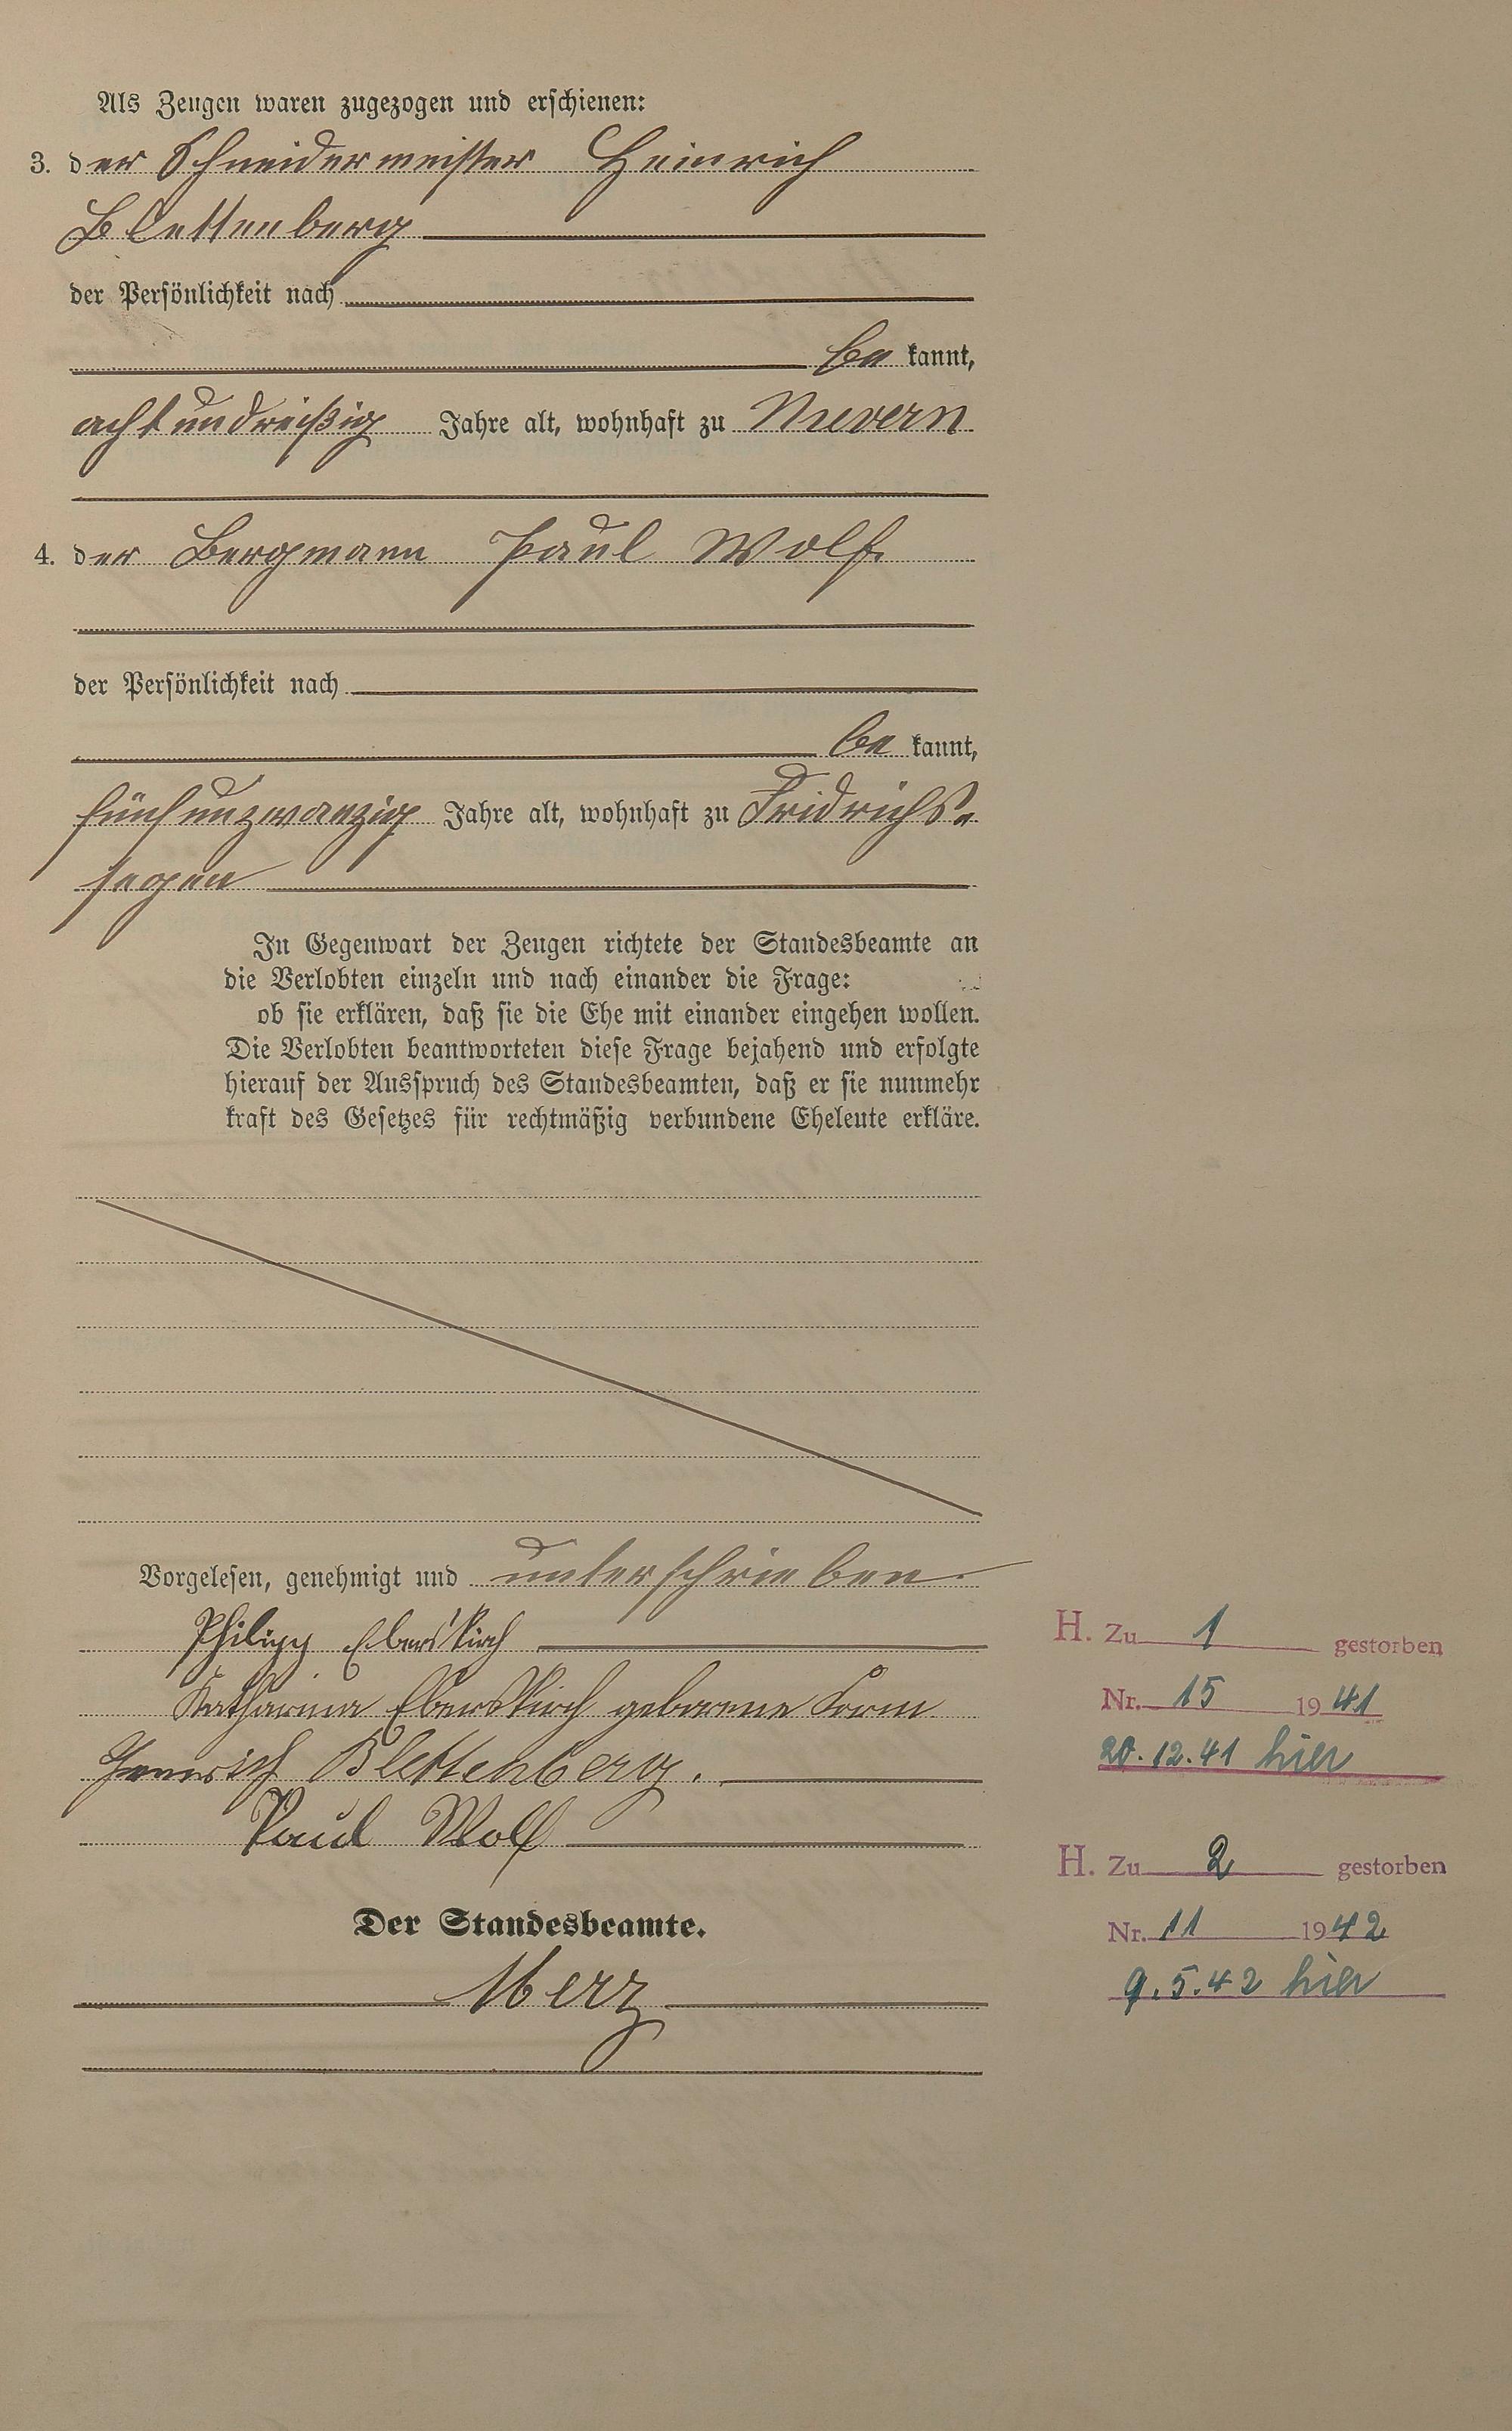 Als Zeugen waren zugezogen und erschienen:
3. der Schneidermeister Heinrich
Blettenberg
der Persönlichkeit nach
be kannt,
achtundreißig Jahre alt, wohnhaft zu Nievern
4. der Bergmann Paul Wolf
der Persönlichkeit nach
be kannt,
fünfunzwanzig Jahre alt, wohnhaft zu Fridrichs-
segen
In Gegenwart der Zeugen richtete der Standesbeamte an
die Verlobten einzeln und nach einander die Frage:
ob sie erklären, daß sie die Ehe mit einander eingehen wollen.
Die Verlobten beantworteten diese Frage bejahend und erfolgte
hierauf der Ausspruch des Standesbeamten, daß er sie nunmehr
kraft des Gesetzes für rechtmäßig verbundene Eheleute erkläre.
Vorgelesen, genehmigt und unterschrieben
Philipp Eberskirch
Katharina Eberskirch geborene
Heinrich Blettenberg.
Paul Wolf
Der Standesbeamte.
Merz
H. Zu 1 gestorben
Nr. 15 1941
20.12.41 hier
H. Zu 2 gestorben
Nr. 11 1942
9.5.42 hier